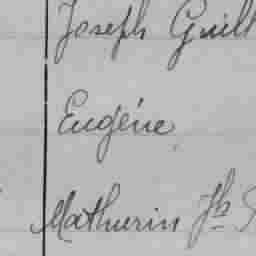 Joseph Guill
Eugéne
Mathurin Jh